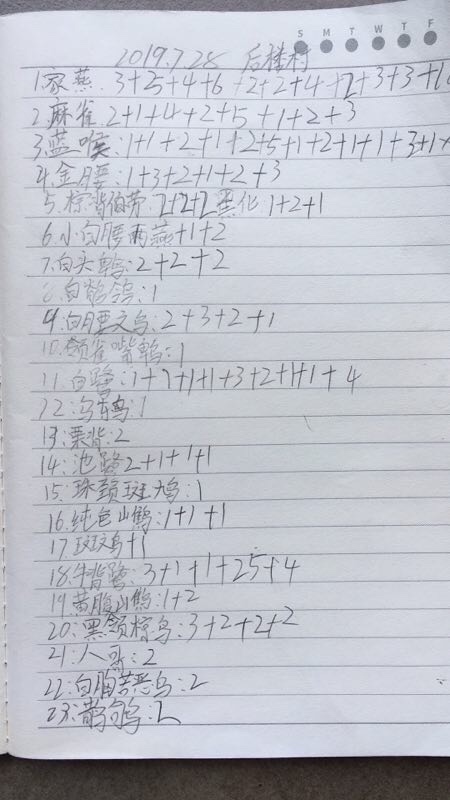 S M T W T F
2019.7.28 后楼村
1.家燕:3+25+4+6+2+2+4+2+3+3+1
2.麻雀:2+1+4+2+5+1+2+3
3.蓝喉:1+1+2+1+2+5+1+2+1+1+3+1+
4.金腰:1+3+2+1+2+3
5.棕背伯劳:2+2+2 黑化:1+2+1
6.小白腰雨燕+1+2
7.白头鹎:2+2+2
8.白鹡鸰:1
9.白腰文鸟:2+3+2+1
10.领雀嘴鹎:1
11.白鹭:1+7+1+1+3+2+1+1+4
12:乌鸫:1
13:栗背:2
14:池鹭2+1+1+1
15:珠颈斑鸠:1
16:纯色山鹪:1+1+1
17:斑文鸟+1
18:牛背鹭:3+1+1+25+4
19:黄腹山鹪:1+2
20:黑领椋鸟:3+2+2+2
21:八哥:2
22:白胸苦恶鸟:2
23:鹊鸲:2